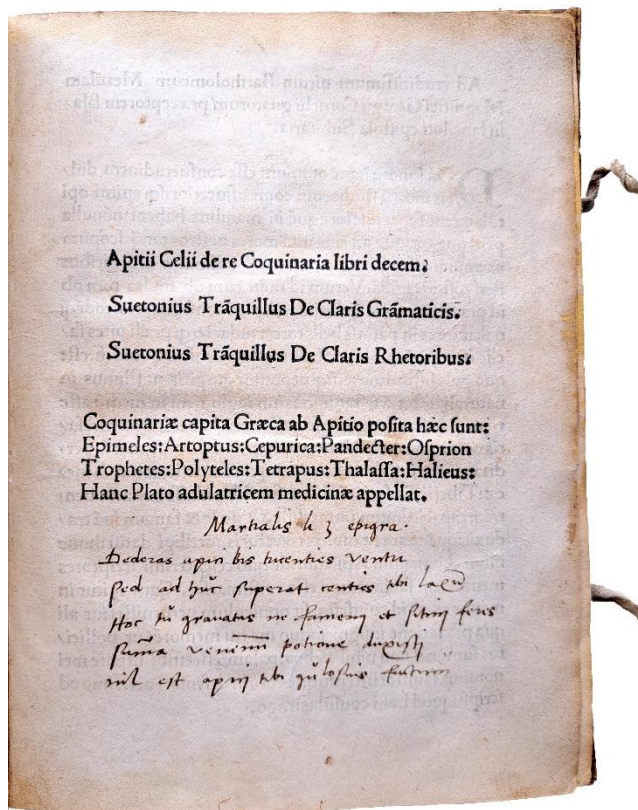 Apitii Celii de re Coquinaria libri decem.
Suetonius Trãquillus De Claris Grãmaticis.
Suetonius Trãquillus De Claris Rhetoribus.
Coquinariæ capita Græca ab Apitio posita hæc sunt:
Epimeles:Artoptus:Cepurica:Pandecter:Osprion
Trophetes:Polyteles:Tetrapus:Thalassa:Halieus:
Hanc Plato adulatricem medicinæ appellat.
Martialis li 3 epigra.
Dederas apici bis tricenties ventri
Sed ad hũc superat centies tibi
Hoc tũ gravatus ne famem et sitim feres
sũma venenum potione
nil est apici tibi gulosius